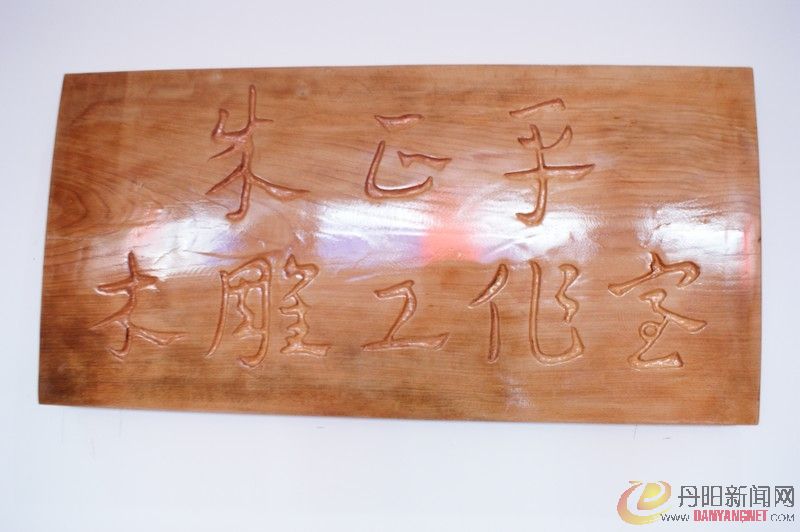 朱正平
木雕工作室
丹阳新闻网
WWW.DANYANG.NET.COM